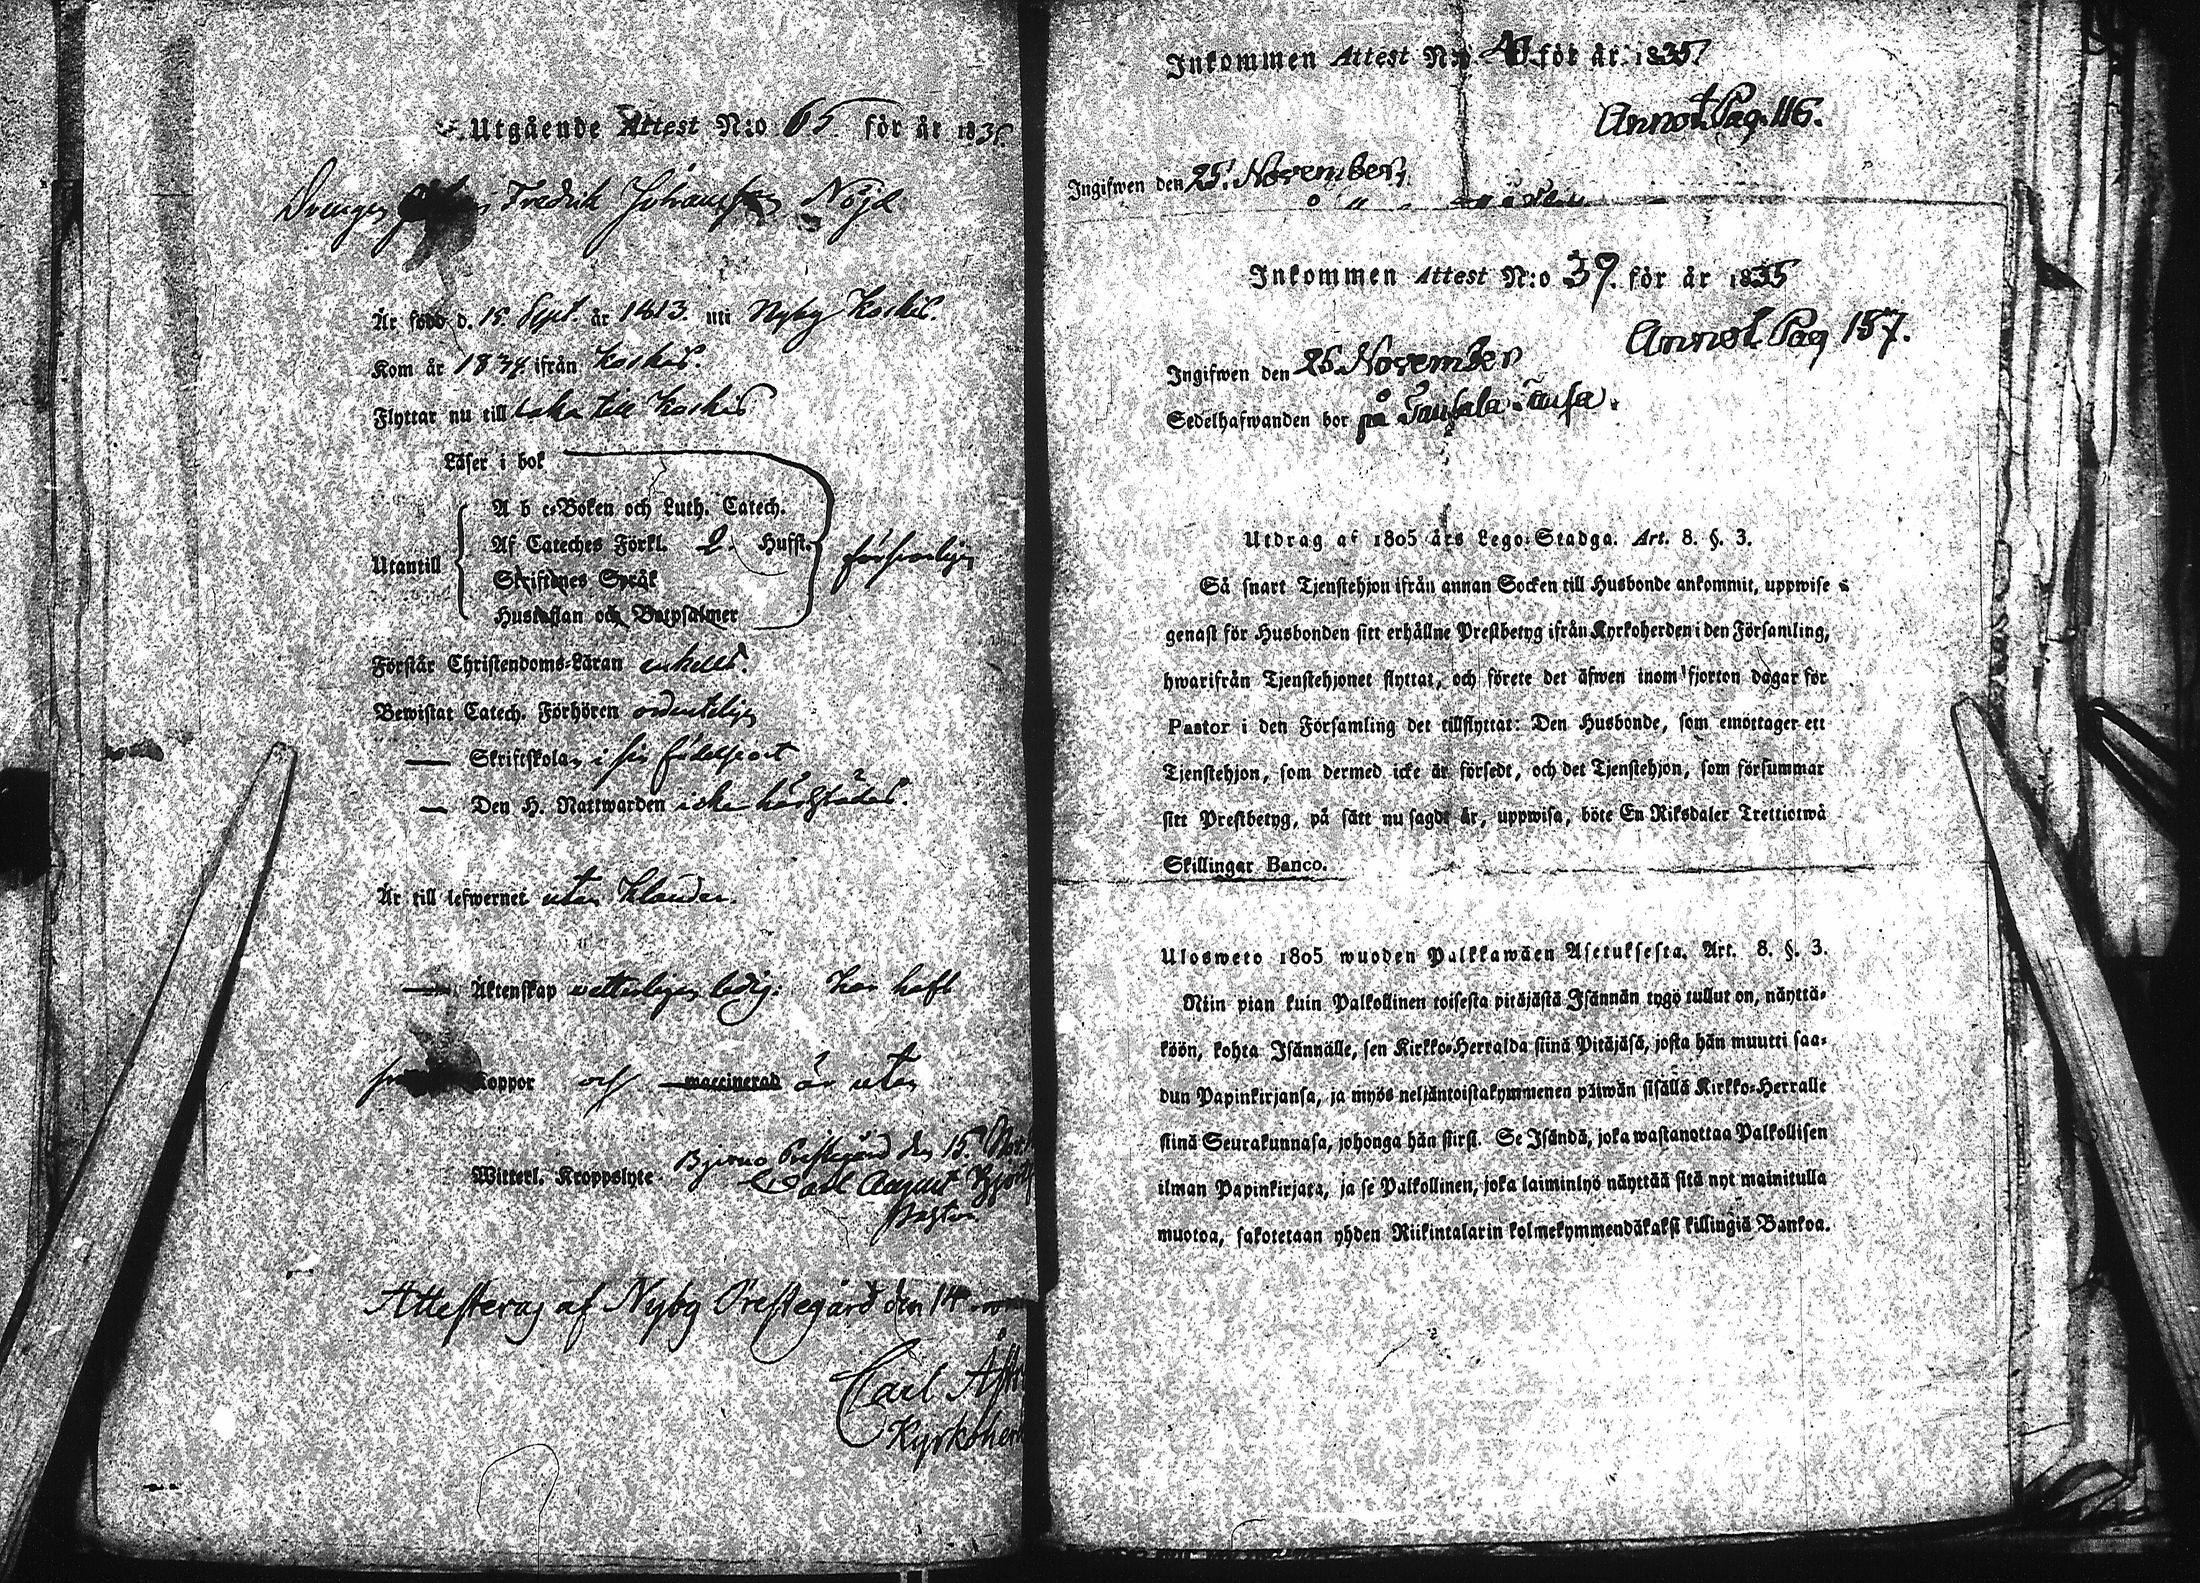 Utgående Attest N:o 65 för år 1835.
Drengen Fredrik Johansson Nöjd
Är född d. 15. Sept. år 1813. uti Nyby Koskis.
Kom år 1834 ifrån Koskis.
Flyttar nu till baka till Koskis
Läser i bok
A b c-Boken och Luth. Catech.
Af Cateches Förkl. 2. Hufst.
Utantill försvarligen
Skriftenes Språk
Hustaflan och Botpsalmer
Förstår Christendoms-Läran enkelt.
Bewistat Catech. Förhören ordenteligen
— Skriftskolan i sin födelseort
— Den H. Nattwarden icke härstädes.
Är till lefwernet utan klander.
— Äktenskap vetterligen ledig. Har haft
koppor och vaccinerad är utan
Witterl. Kroppslyte. Bjerno Prestegård den 15.
Carl August
Pastor.
Attesteras af Nyby Prestegård den 14
Carl
Kyrkoherd
Inkommen Attest N:o för år 1835
Annot. Pag. 116.
Ingifwen den 25. November,
Inkommen Attest N:o 39. för år 1835
Annot. Pag 157.
Ingifwen den 25 November
Sedelhafwanden bor på
Utdrag af 1805 års Lego-Stadga. Art. 8. §. 3.
Så snart Tjenstehjon ifrån annan Socken till Husbonde ankommit, uppwise
genast för Husbonden sitt erhållne Prestbetyg ifrån Kyrkoherden i den Församling,
hwarifrån Tjenstehjonet flyttat, och förete det äfwen inom fjorton dagar för
Pastor i den Församling det tillflyttat: Den Husbonde, som emottager ett
Tjenstehjon, som dermed icke är försedt, och det Tjenstehjon, som försummar
sitt Prestbetyg, på sätt nu sagdt är, uppwisa, böte En Riksdaler Trettiotwå
Skillingar Banco.
Ulosweto 1805 wuoden Palkkawäen Asetuksesta. Art. 8. §. 3.
Niin pian kuin Palkollinen toisesta pitäjästä Isännän tygö tullut on, näyttä-
köön, kohta Isännälle, sen Kirkko-Herralda siinä Pitäjäsä, josta hän muutti saa-
dun Papinkirjansa, ja myös neljäntoistakymmenen päiwän sisällä Kirkko-Herralle
siinä Seurakunnasa, johonga hän siirsi. Se Isändä, joka wastanottaa Palkollisen
ilman Papinkirjata, ja se Palkollinen, joka laiminlyö näyttää sitä nyt mainitulla
muotoa, sakotetaan yhden Riikintalarin kolmekymmendäkaksi killingiä Bankoa.